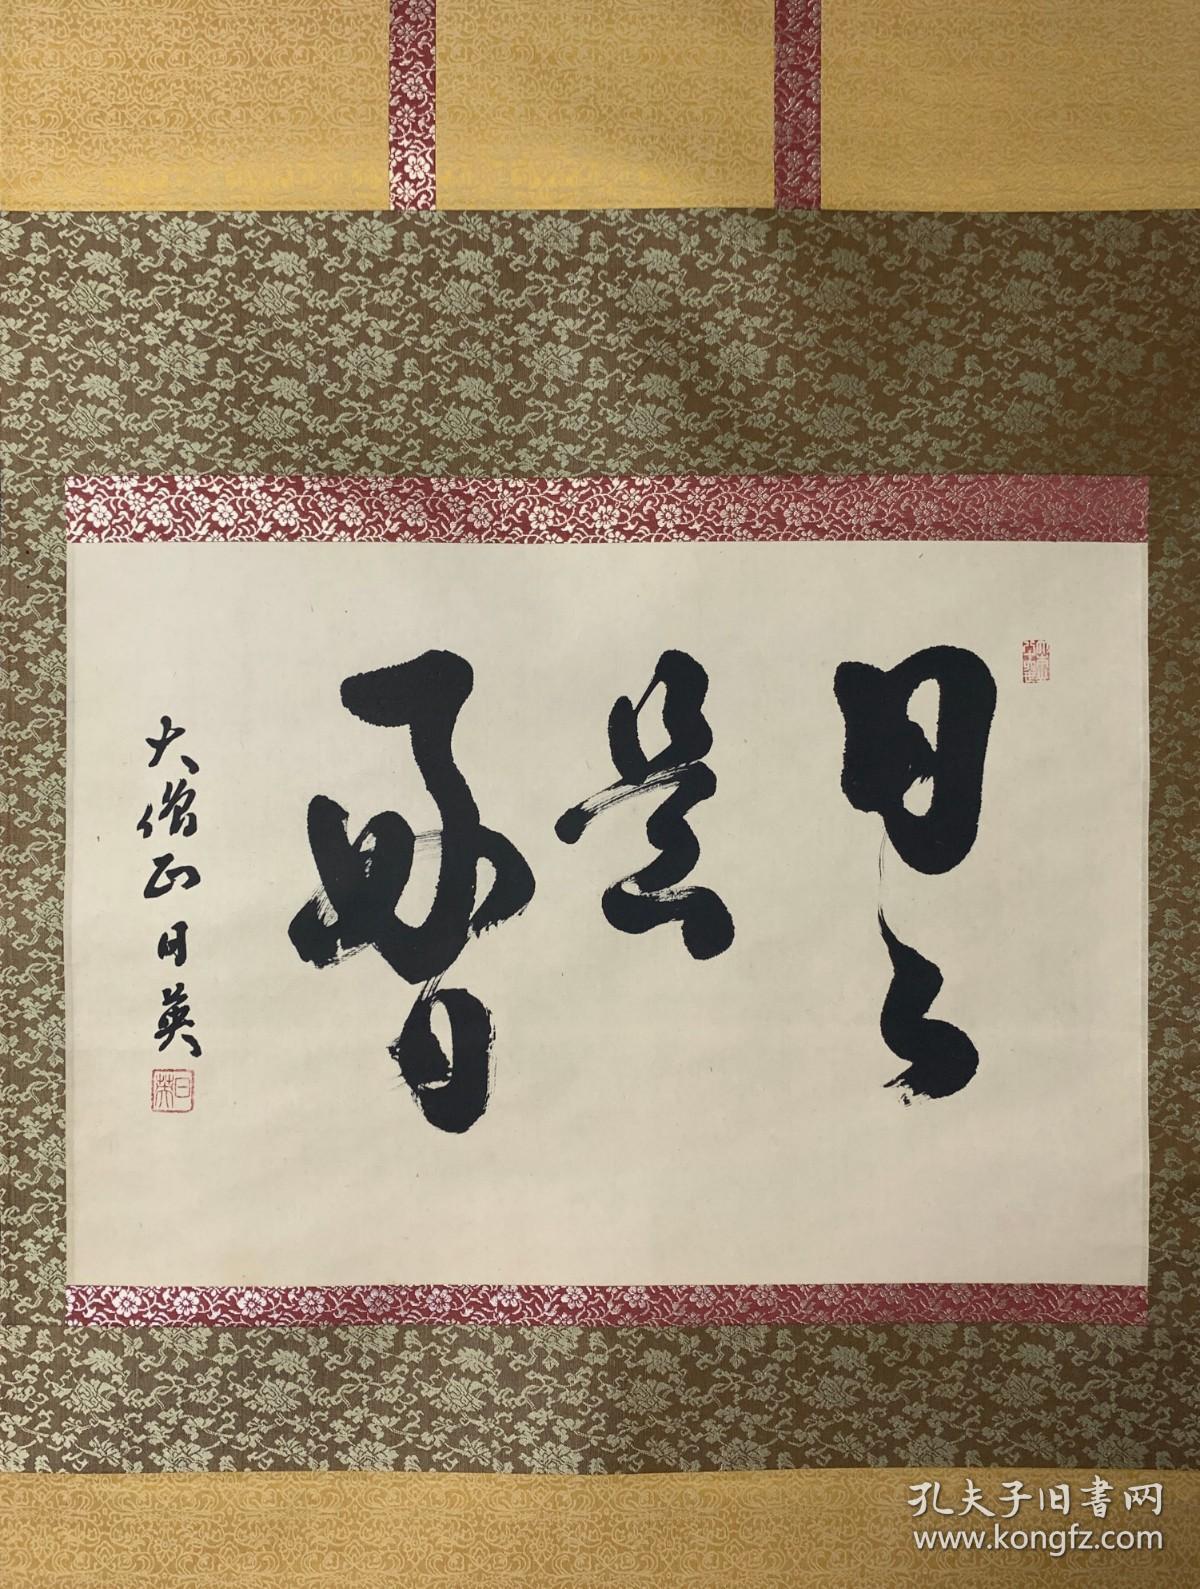 日々
是
好日
大僧正日英
日英
孔夫子旧書网
www.kongfz.com